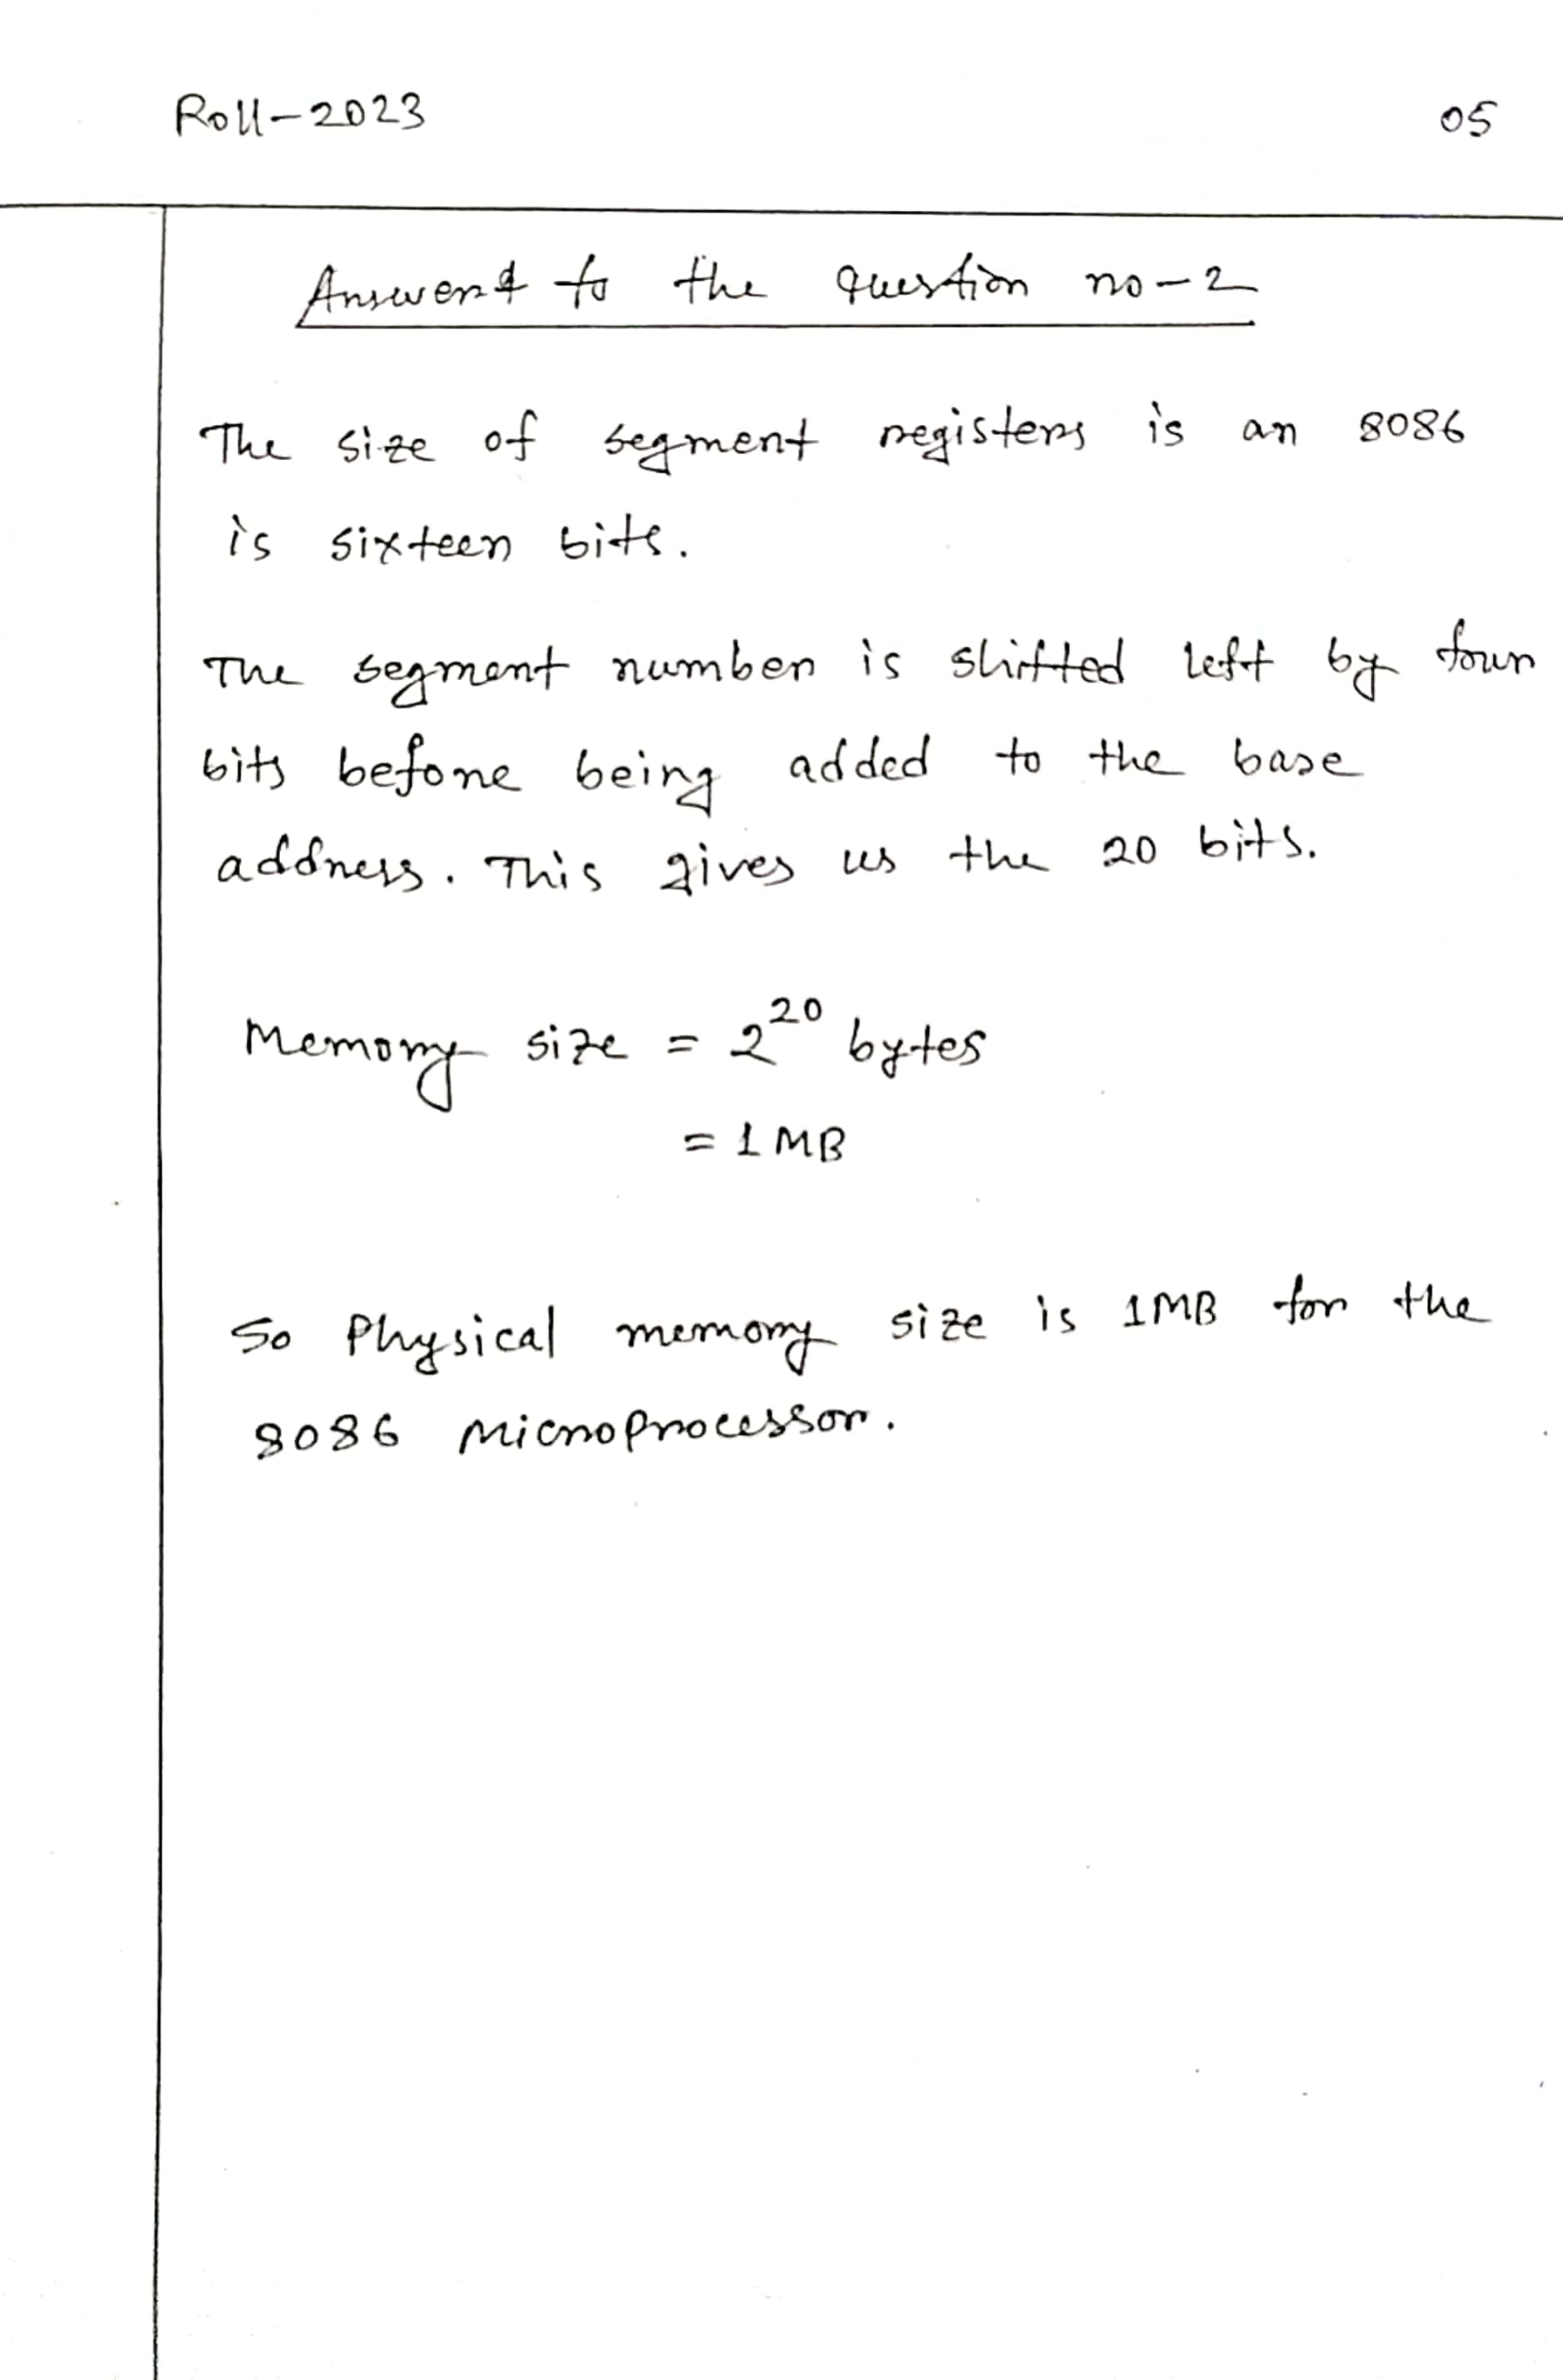 Roll-2023
05
Answer to the question no-2
The size of segment registers is an 8086
is sixteen bits.
The segment number is shifted left by four
bits before being added to the base
address. This gives us the 20 bits.
Memory size = 2²⁰ bytes
= 1MB
So Physical memory size is 1MB for the
8086 Microprocessor.